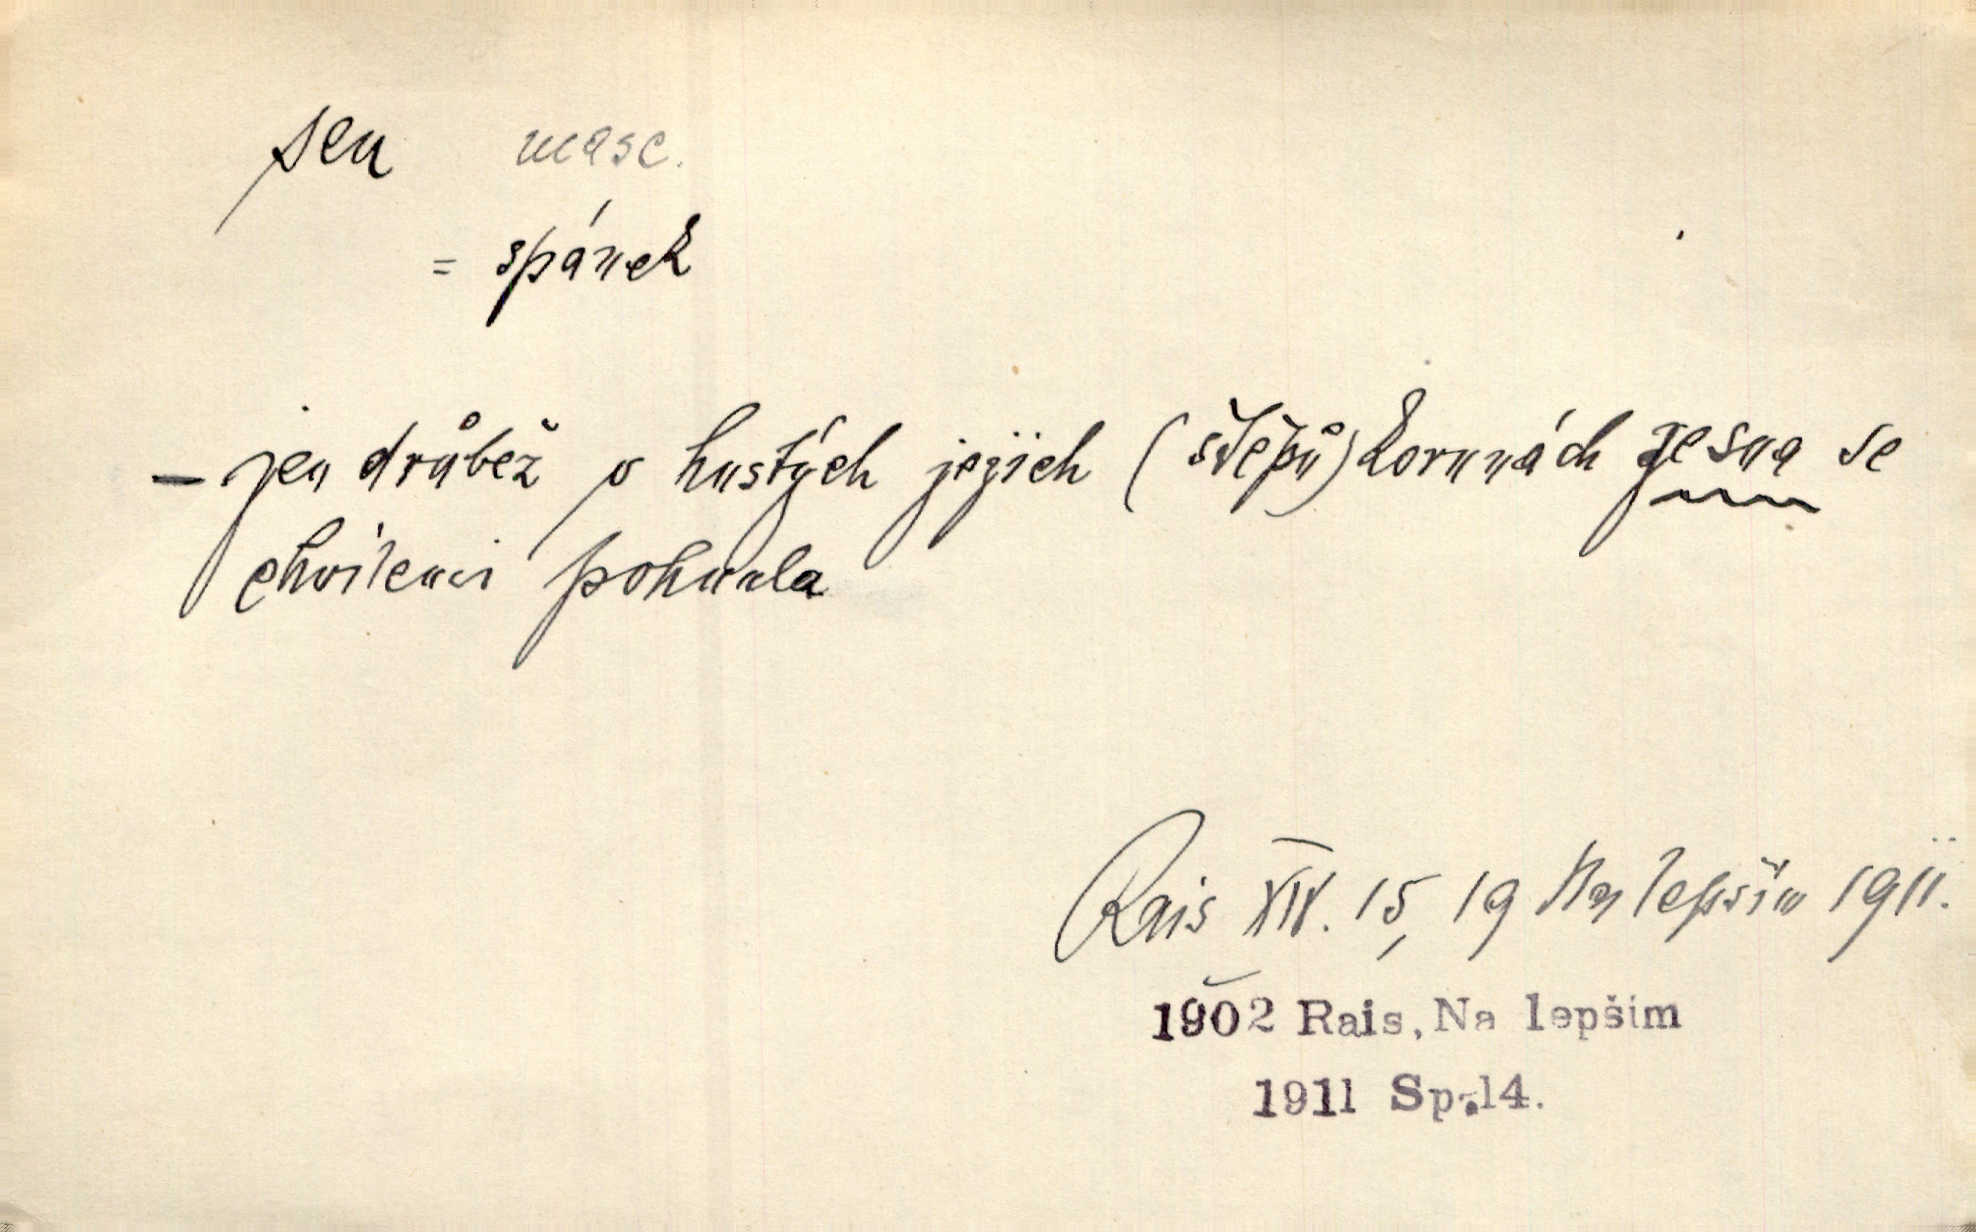 sen masc.
= spánek
– jen drůbež v hustých jejich (štěpů) korunách ze sna se
chvílemi pohnula
Rais XIV. 15, 19 Na lepším 1911.
1902 Rais, Na lepším
1911 Sp.14.